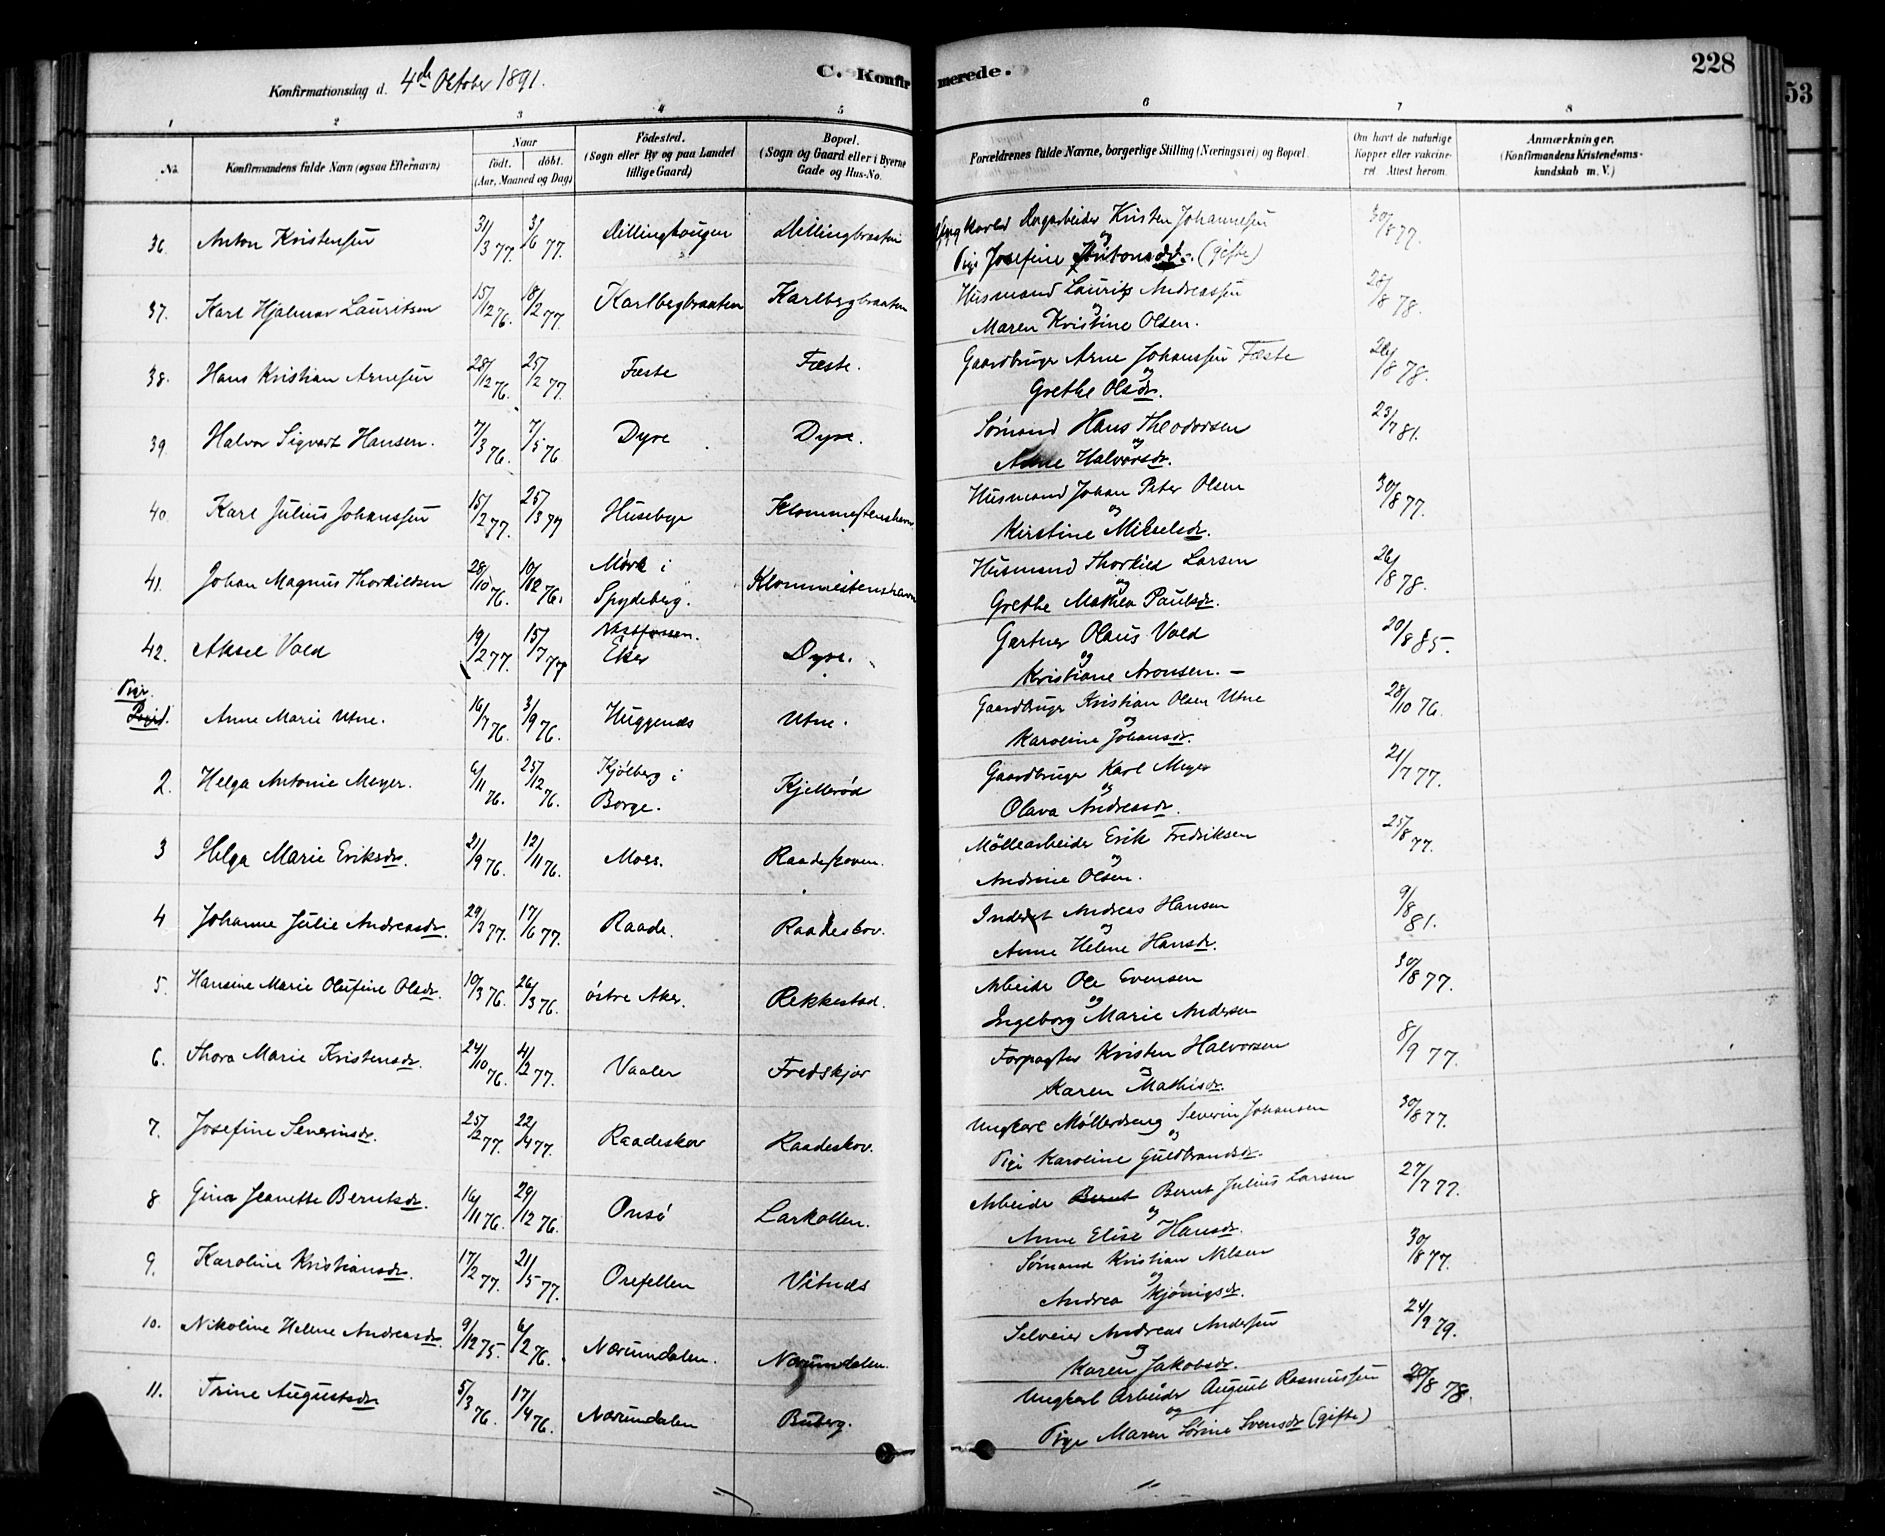 228
53
C. Konfirmerede.
Konfirmationsdag d. 4de October 1891.
1 2 3 4 5 6 7 8
No. Konfirmandens fulde Navn (ogsaa Efternavn) Naar født. døbt. (Aar, Maaned og Dag) Fødested. (Sogn eller By og paa Landet tillige Gaard) Bopæl. (Sogn og Gaard eller i Byerne Gade og Hus-No. Forældrenes fulde Navne, borgerlige Stilling (Næringsvei) og Bopæl. Om havt de naturlige Kopper eller vakcineret Attest herom. Anmærkninger. (Konfirmandens Kristendomskundskab m. V.)
36. Anton Kristensen 31/3 77. 3/6 77. Dillinghaugen Dillingbraaten Ungkarl Dagarbeider Kristen Johannesen 30/8 77.
og Pige Josefine Antonsdr. (gifte)
37. Karl Hjalmar Lauritsen 15/12 76. 18/2 77. Karlbergbraaten Karlbergbraaten Husmand Laurits Andreassen 28/8 78.
og Maren Kristine Olsen.
38. Hans Kristian Arnesen 28/12 76. 25/2 77. Fæste Fæste. Gaardbruger Arne Johanssen Fæste 26/8 78.
og Grethe Olsdr.
39. Halvor Sigvart Hansen. 7/3 76. 7/5 76 Dyre Dyre. Sømand Hans Theodorsen 23/7 81.
og Anne Halvorsdr.
40. Karl Julius Johanssen 15/2 77. 25/3 77 Husebye Klommestenshavn Husmand Johan Peter Olsen 30/8 77.
og Kirstine Mikkelsdr.
41. Johan Magnus Thorkildsen 28/10 76. 10/12 76. Mørk i Spydeberg. Klommestenshavn Husmand Thorkild Larsen 26/8 78.
og Grethe Mathea Paulsdr.
42. Aksel Vold 19/2 77. 15/7 77 Vestfossen. Eker Dyre. Gartner Olaus Vold 20/8 85.
og Kristiane Aronsen. —
Piger. Anne Marie Utne. 16/7 76. 3/9 76. Huggenæs Utne. Gaardbruger Kristian Olsen Utne 28/10 76.
og Karoline Johansdr.
2. Helga Antonie Meyer. 6/11 76. 25/12 76. Kjølberg i Borge. Kjellerød Gaardbruger Karl Meyer 21/7 77.
og Olava Andreasdr.
3 Helga Marie Eriksdr. 21/9 76. 12/11 76. Moss. Raadeskoven. Møllearbeider Erik Fredriksen 25/8 77.
og Andrine Olsen.
4 Johanne Julie Andreasdr. 29/3 77. 17/6 77. Raade. Raadeskov. Inderst Andreas Hansen 9/8 81.
og Anne Helene Hansdr.
5. Hansine Marie Olufine Olsdr. 10/3 76. 26/3 76. Østre Aker. Rekkestad. Arbeider Ole Evensen 30/8 77.
og Ingeborg Marie Andersen
6. Thora Marie Kristensdr. 24/10 76. 4/2 77. Vaaler Fredskjør Forpagter Kristen Halvorsen 8/9 77.
og Karen Mathisdr.
7. Josefine Severinsdr. 25/2 77. 22/4 77. Raadeskov Raadeskov. Ungkarl Møllerdreng Severin Johansen 30/8 77.
og Pige Karoline Guldbrandsdr.
8 Gina Jeanette Berntsdr. 16/11 76. 29/12 76. Onsø Larkollen. Arbeider Bernt Bernt Julius Larsen 27/7 77.
og Anne Elise Hansdr.
9. Karoline Kristiansdr. 17/2 77. 21/5 77. Orefellen Vitnæs Sømand Kristian Nilsen 30/8 77.
og Andrea Kjønigsdr.
10. Nikoline Helene Andreasdr. 9/12 75. 6/2 76. Nærumdalen. Nærumdalen. Selveier Andreas Andersen 24/9 79.
og Karen Jakobsdr.
11. Trine Augustsdr 5/3 76. 17/4 76. Nærumdalen Buberg. Ungkarl Arbeider August Rasmussen 20/8 78.
og Pige Maren Sørine Svensdr (gifte)